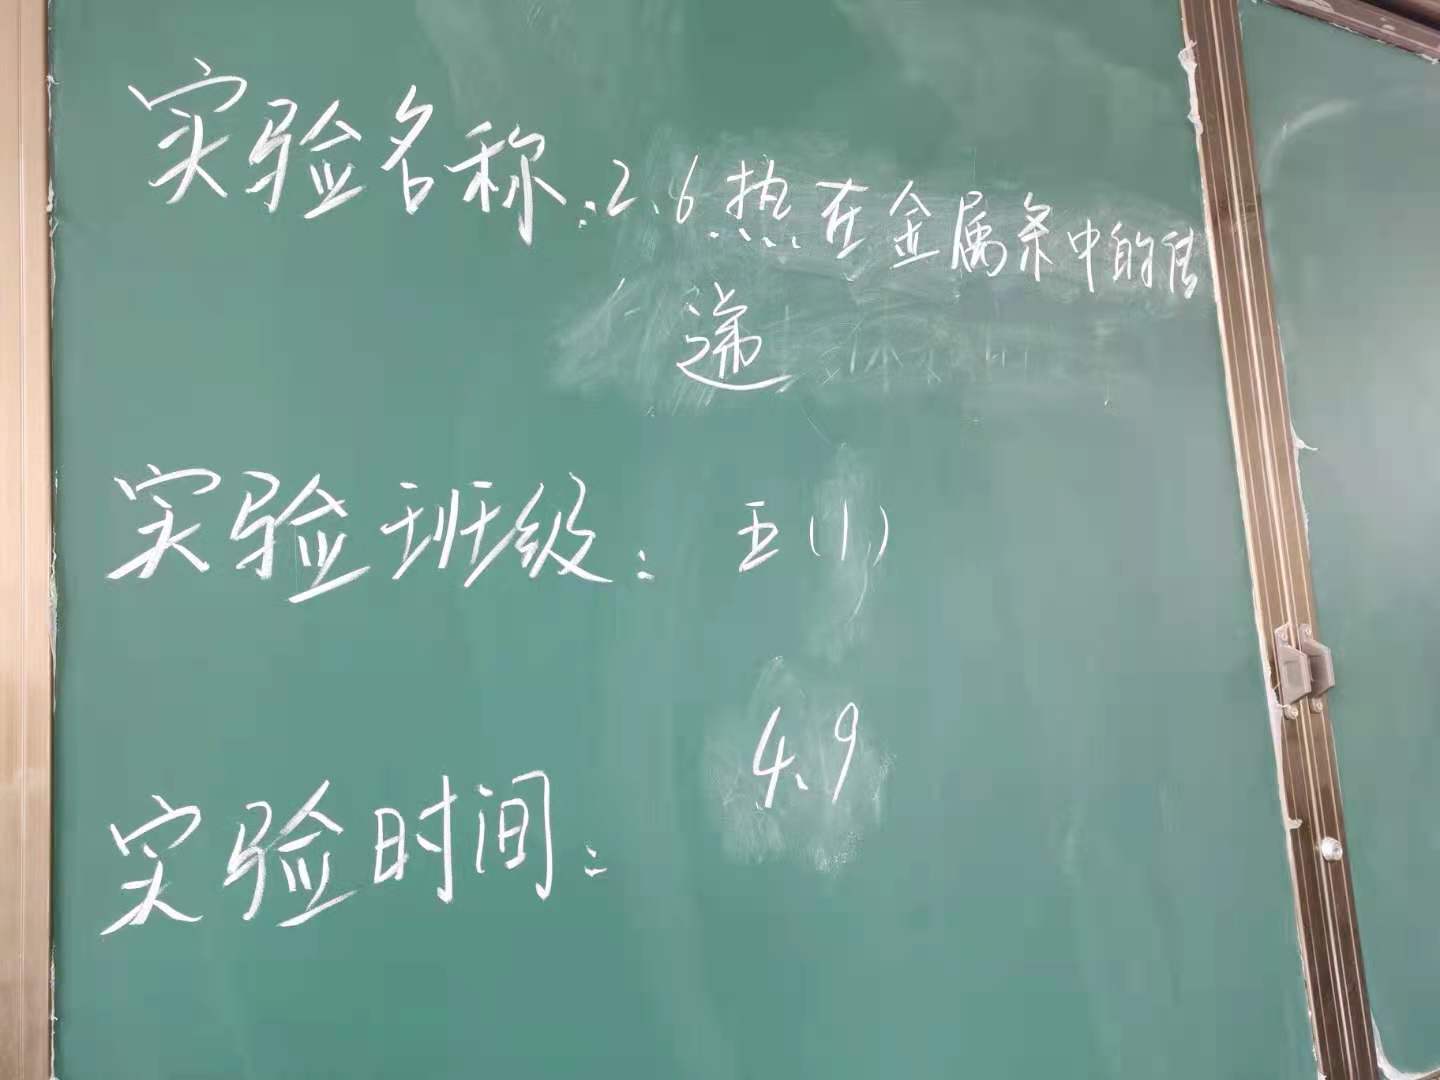 实验名称:2.6热在金属条中的传
递
实验班级: 五(1)
实验时间: 4.9